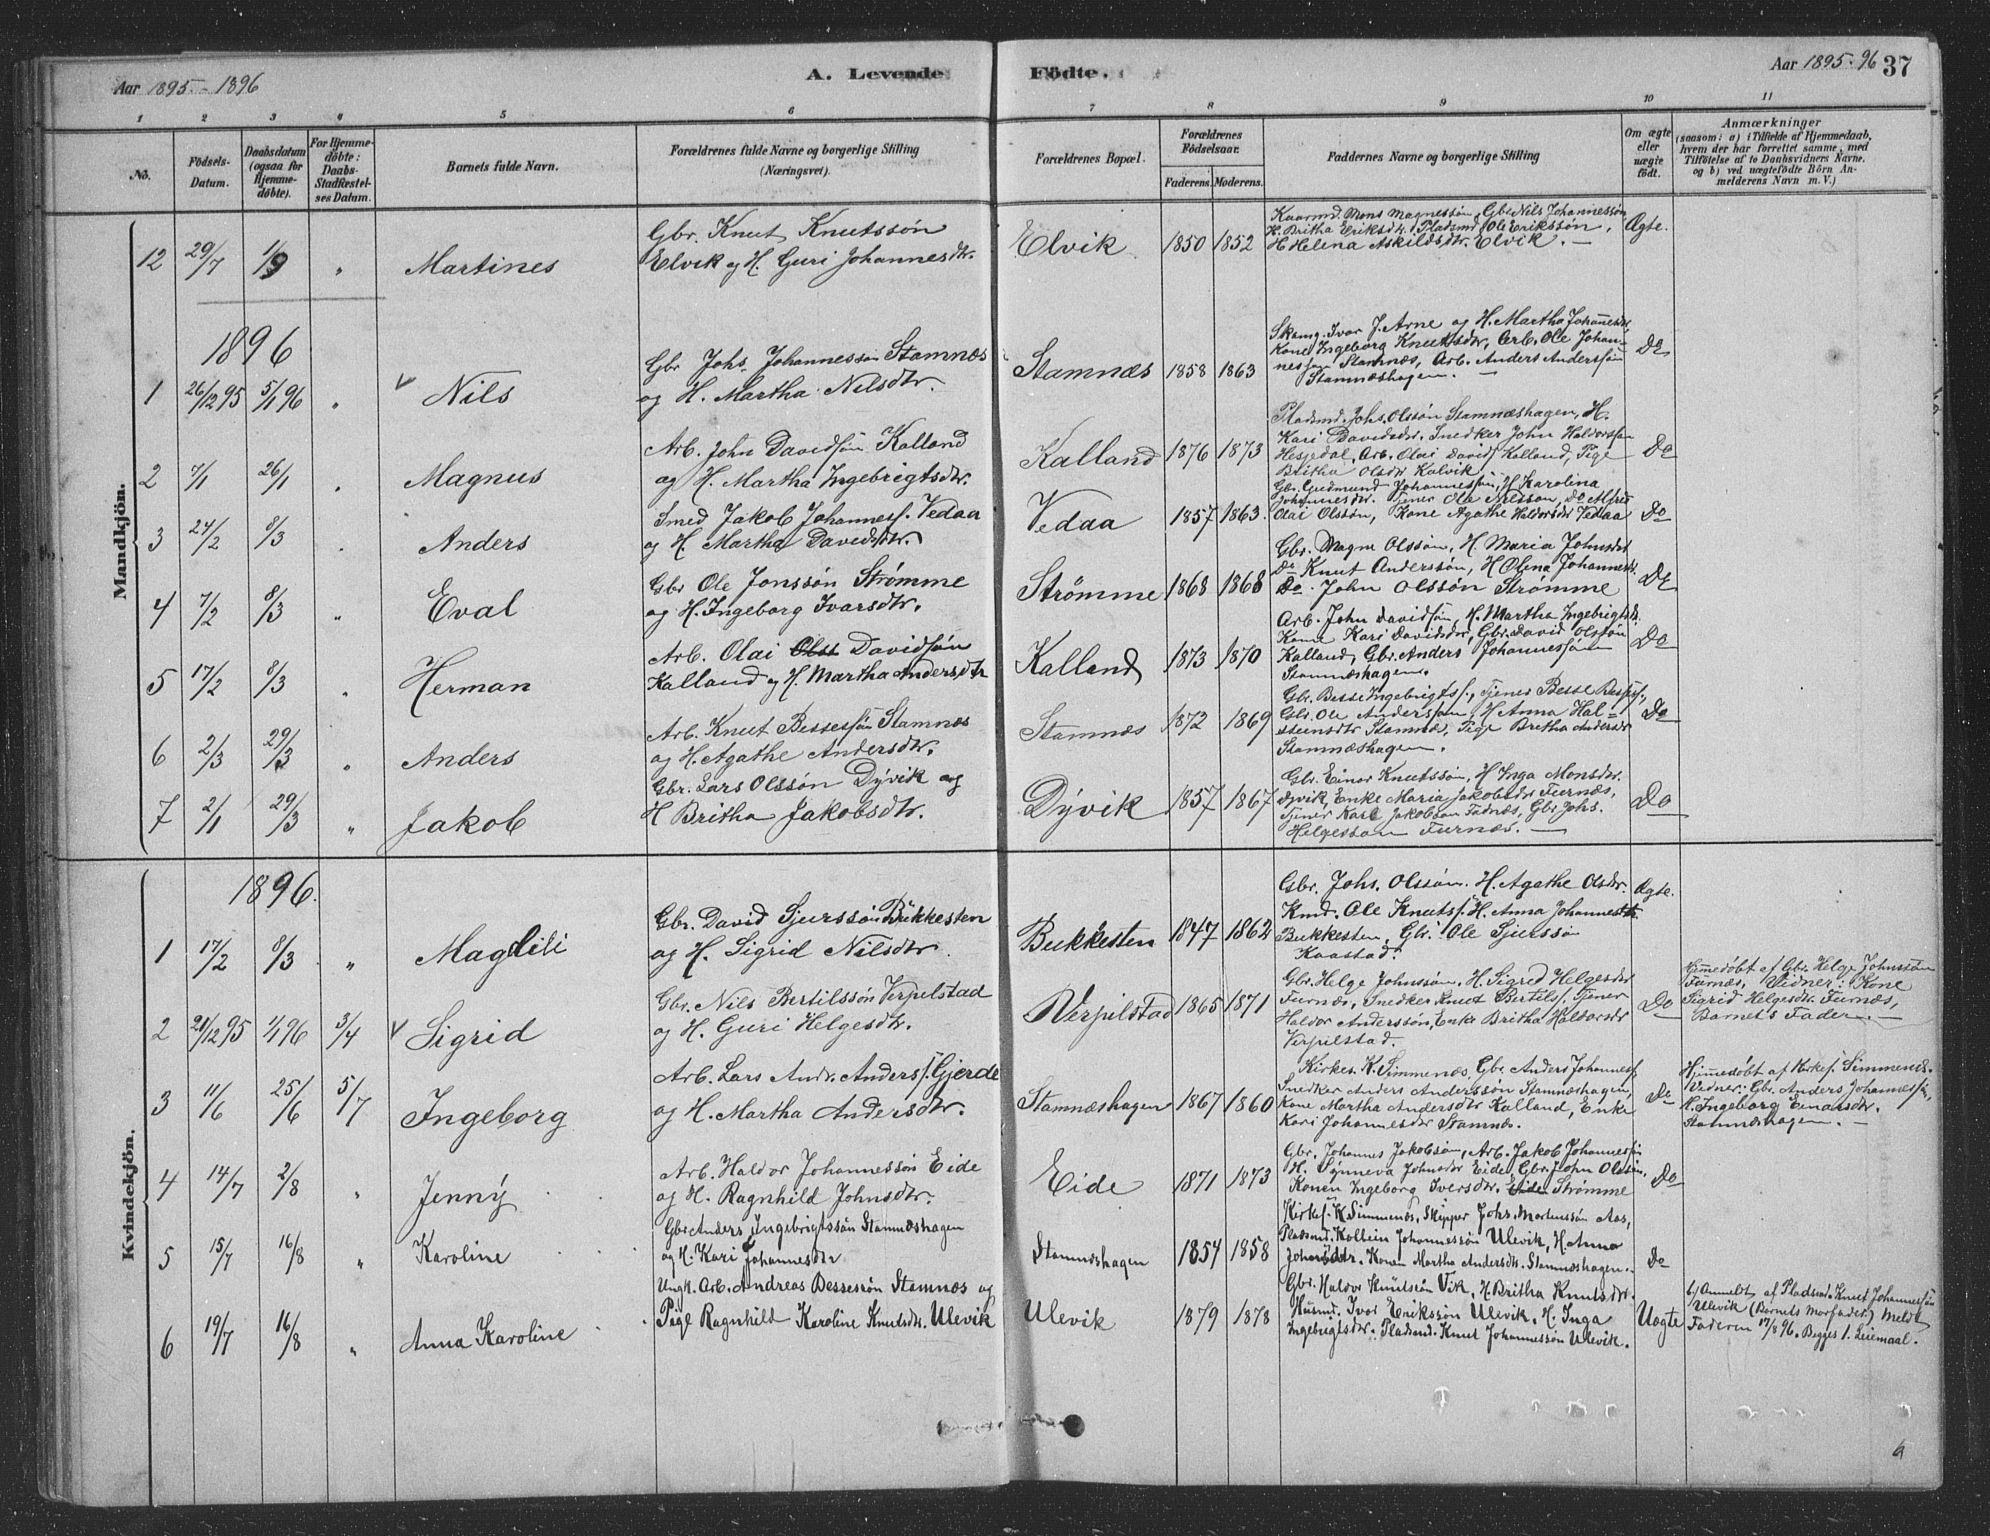 Aar 1895 - 1896
A. Levende
Födte.
Aar 1895-96
37
1 2 3 4 5 6 7 8 9 10 11
No.
Födsels-
Datum.
Daabsdatum
(ogsaa for
Hjemme-
döbte).
For Hjemme-
döbte:
Daabs-
Stadfæstel-
ses Datum.
Barnets fulde Navn.
Forældrenes fulde Navne og borgerlige Stilling
(Næringsvei).
Forældrenes Bopæl.
Forældrenes
Födselsaar.
Faderens. Moderens.
Faddernes Navne og borgerlige Stilling
Om ægte
eller
uægte
födt.
Anmærkninger
(saasom: a) i Tilfælde af Hjemmedaab,
hvem der har forrettet samme, med
Tilföielse af to Daabsvidners Navne,
og b) ved uægtefödte Börn An-
melderens Navn m. V.)
Mandkjön.
12 29/7 1/9 "
Martines
Gbr. Knut Knutssön
Elvik og H. Guri Johannesdtr.
Elvik 1850 1852
Kaarmd. Mons Magnessön, Gbr. Nils Johannessön
H. Britha Eriksdtr. Pladsmd. Ole Erikssön,
H. Helena Askildsdtr. Elvik. —
Ægte.
1896
1 26/12 95 5/1 96 "
Nils
Gbr Johs. Johannesson Stamnæs
og H. Martha Nilsdtr.
Stamnæs 1858 1863
Skomg. Ivar J. Arne og H. Martha Johannesdtr.
Kone Ingeborg Knutsdtr, Arb. Ole Johan-
nesson Stamnæs, Arb. Anders Anderssön
Stamnæshagen. —
Do
2 7/1 26/1 "
Magnus
Arb. John Davidsön Kalland
og H. Martha Ingebrigtsdtr.
Kalland 1876 1873
Pladsmd. Johs. Olssön Stamnæshagen, H.
Kari Davidsdr. Snedker John Haldorsson
Hesjedal, Arb. Olai Davids. Kalland, Pige
Britha Olsdr Kalvik
Do
3 24/2 8/3 "
Anders
Smed Jakob Johanness. Vedaa
og H. Martha Davidsdtr.
Vedaa 1857 1863.
Gbr. Gudmund Johannessön, H. Karolina
Johannesdtr. Tjener Ole Nilsson, Do Alfred
Olai Olssön, Kone Agathe Haldorsdr Vedaa
Do
4 7/2 8/3 "
Eval
Gbr Ole Jonssön Strømme
og H. Ingeborg Ivarsdtr.
Strømme 1868 1868
Gbr. Magne Olssön, H. Maria Johnsdtr
Do Knut Anderssön, H Olina Johannesdt.
Do. John Olssön Strømme
Do
5 17/2 8/3 "
Herman
Arb. Olai Davidssön
Kalland og H. Martha Andersdtr
Kalland 1873 1870
Arb. John Davidsön, H. Martha Ingebrigtsdt.
Kone Kari Davidsdr, Gbr. David Olssön
Kalland, Gbr. Anders Johannessön
Stamnæshagen.
Do
6 2/3 29/3 "
Anders
Arb. Knut Bessessön Stamnæs
og H. Agathe Andersdtr.
Stamnæs 1872 1869
Gbr. Besse Ingebrigts., Tjener Besse Bess.,
Gbr. Ole Anderssön, H. Anna Hal-
steinsdtr Stamnæs, Pige Britha Andersdr
Stamnæshagen.
Do
7 2/1 29/3 "
Jakob
Gbr. Lars Olssön Dývik og
H Britha Jakobsdtr.
Dývik 1857 1867
Gbr. Einar Knutssön, H Inga Monsdtr.
Dyvik, Enke Maria Jakobsdr Furnæs,
Tjener Karl Jakobsön Fadnæs, Gbr. Johs.
Helgesson Furnæs. —
Do
Kvindekjön.
1896.
1 17/2 8/3 "
Magdili
Gbr. David Sjurssön Bukkesten
og H. Sigrid Nilsdtr.
Bukkesten 1847 1862
Gbr. Johs. Olssön. H. Agathe Olsdr.
Kmd. Ole Knuts. H. Anna Johannesdtr
Bukkesten, Gbr. Ole Sjurssön
Kaastad.
Ægte.
2 21/12 95 1/1 96 3/4
Sigrid
Gbr. Nils Bertilssön Verpelstad
og H. Guri Helgesdtr.
Verpilstad 1865 1871
Gbr. Helge Johnssön, H. Sigrid Helgesdtr
Furnæs, Snedker Knut Bertils. Tjener
Haldor Anderssön, Enke Britha Haldorsdr
Verpilstad.
Do
Hjmedøbt af Gbr. Helge Johnssön
Furnæs, Vidner: Kone
Sigrid Helgesdr. Furnæs,
Barnets Fader. —
3 11/6 25/6 5/7
Ingeborg
Arb. Lars Andr. Anders. Gjerde
og H. Martha Andersdtr.
Stamnæshagen 1867 1860
Kirkes. K. Simmenæs, Gbr. Anders Johannes.
Snedker Anders Anderssön Stamnæshagen,
Kone Martha Andersdtr Kalland, Enke
Kari Johannesdr Stamnæs.
Do
Hjmedøbt af Kirkes. Simmenæs.
Vidner: Gbr. Anders Johannessön,
K. Ingeborg Einarsdr.
Stamnæshagen. —
4 14/7 2/8 "
Jenný
Arb. Haldor Johannessön Eide
og H. Ragnhild Johnsdtr.
Eide 1871 1873
Gbr. Johannes Jakobsön, Arb. Jakob Johannessön
H. Synneva Johnsdtr Eide, Gbr. John Olssön,
Konen Ingeborg Iversdtr. Eide Strømme
Do
5 15/7 16/8 "
Karoline
Gbr. Anders Ingebrigtssön Stamnæshagen
og H. Kari Johannesdtr
Stamnæshagen 1854 1858
Kirkes. K. Simmenæs, Skipper Johs. Mortenssön Aas,
Pladsmd. Kollein Johannessön Ulevik, H. Anna
Johansdtr. Konen Martha Andersdtr. Stamnæshagen.
Do
6 19/7 16/8 "
Anna Karoline
Ungk. Arb. Andreas Bessessön Stamnæs og
Pige Ragnhild Karoline Knutsdtr. Ulevik
Ulevik 1879 1878
Gbr. Haldor Knutssön Vik, H. Britha Knutsdtr.
Husmd. Ivar Erikssön Ulevik, H. Inga
Ingebrigtsdtr. Pladsmd. Knut Johannessön Ulevik.
Uægte
b) Anmeldt af Pladsmd. Knut Johannessön
Ulevik (Barnets Morfader) Meldt
Faderen 17/8 96. Begges 1. Leiemaal.